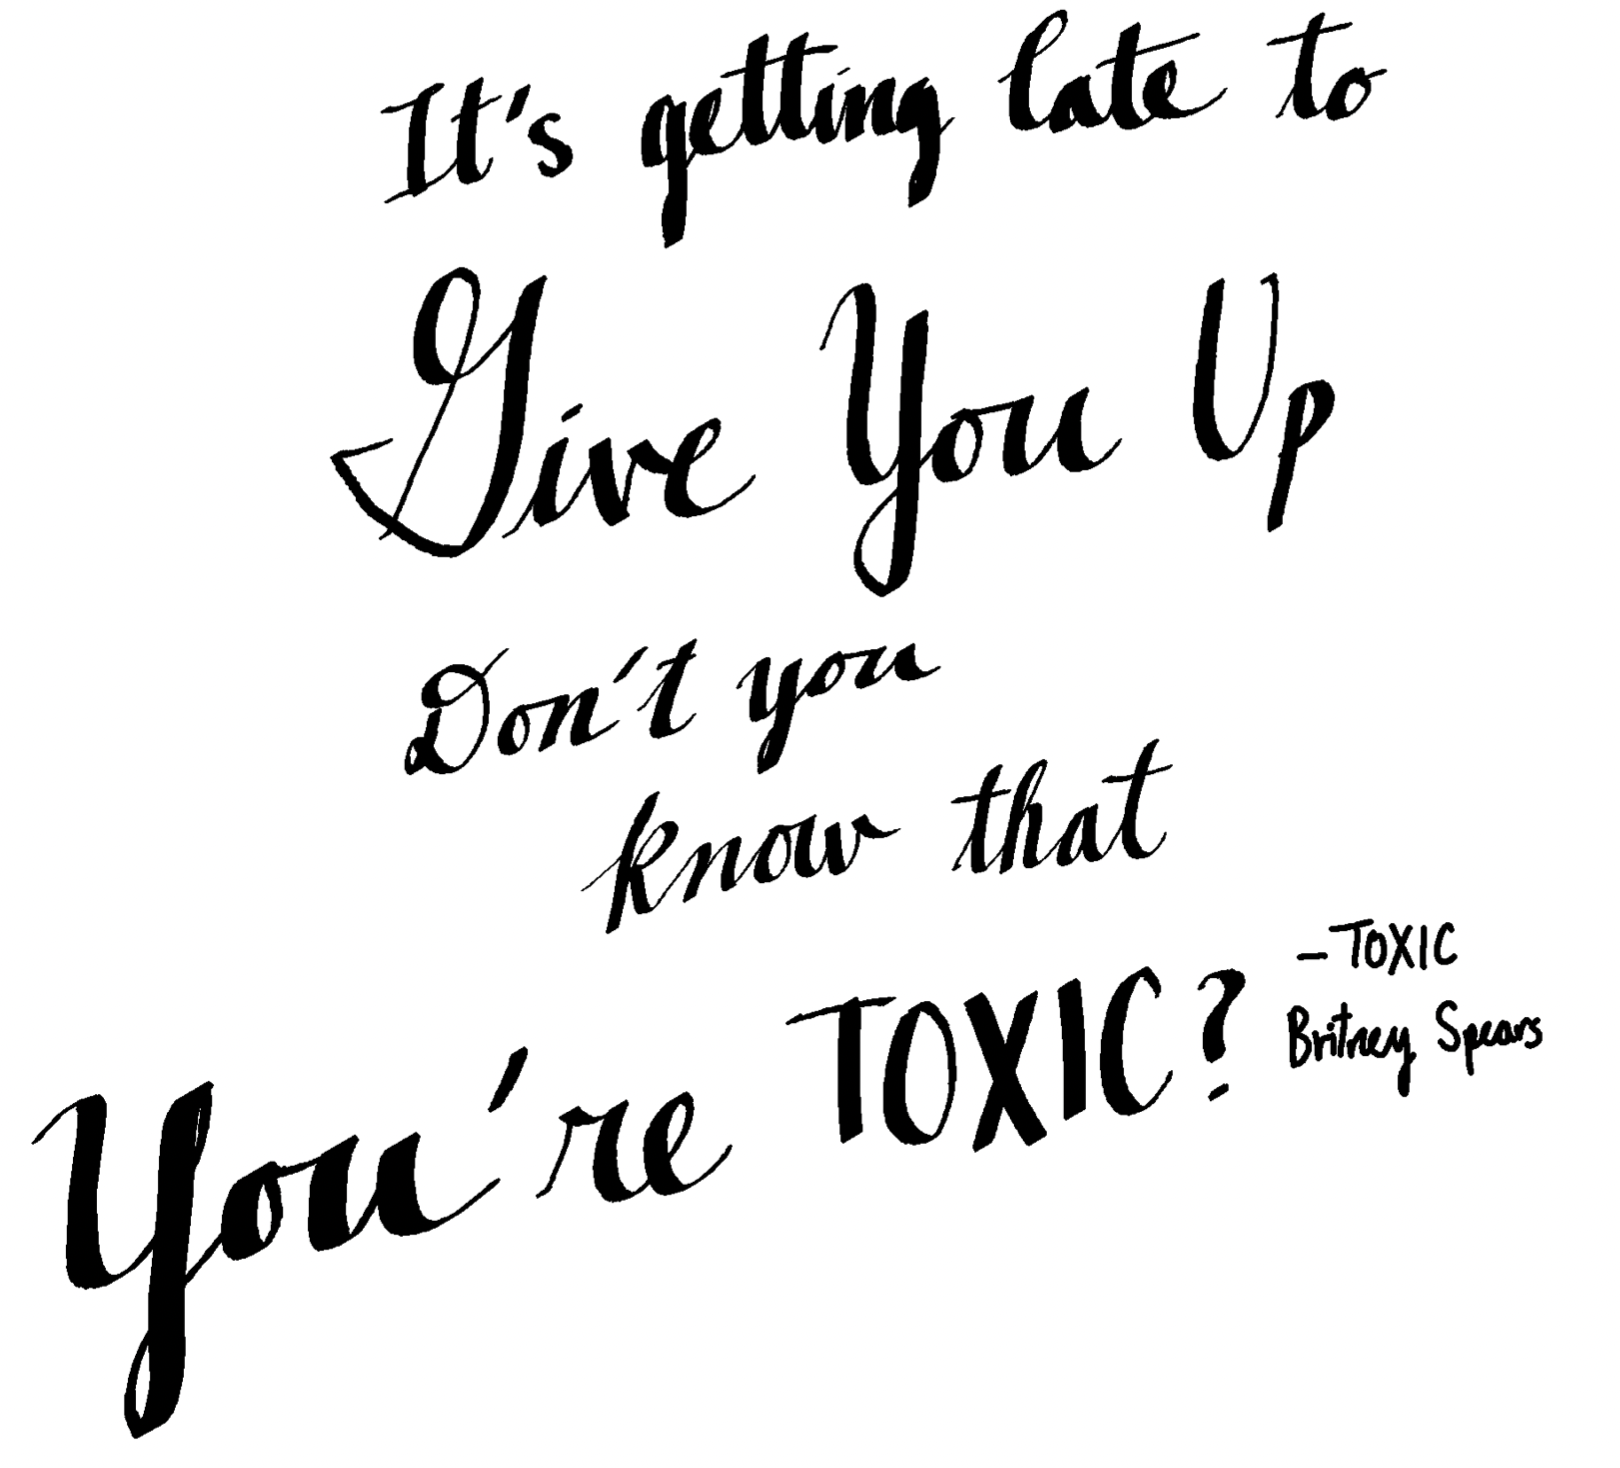 It's getting late to
Give You Up
Don't you
know that
You're TOXIC?
- TOXIC
Britney Spears